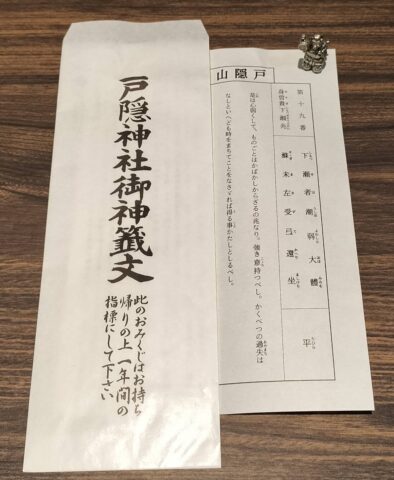 戸隠神社御神籤文
此のおみくじはお持ち
帰りの上一年間の
指標にして下さい
戸隠山
第十九番
身曾貴下瀬
下瀬者瀬弱大體
末左受已還坐
平
是は心弱くして、ものごとはかばかしからざるの兆なり。強き意持つべし。かくべつの過失は
なしといへども時をまちてことをなさゞれば得る事かたしとしるべし。